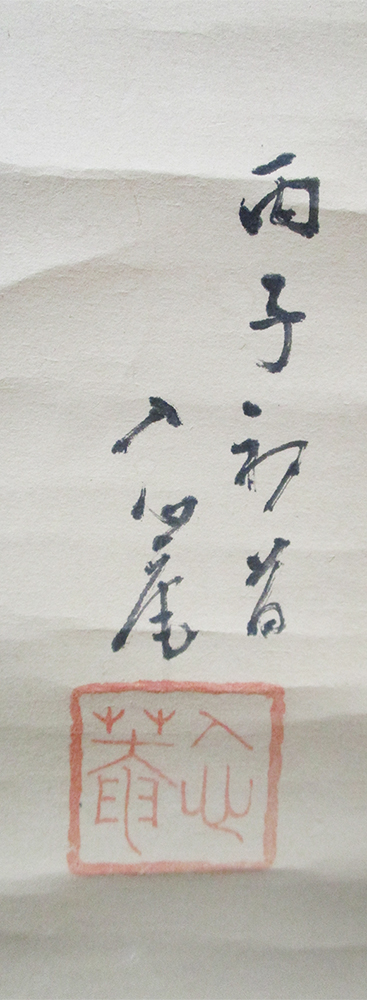 丙子初春
入心庵
入心菴